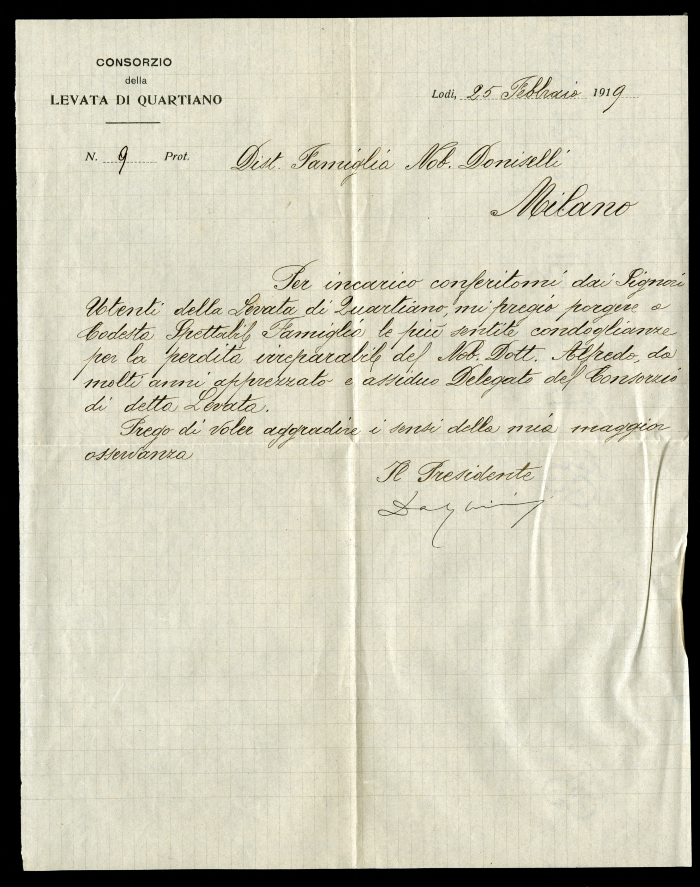 CONSORZIO
della
LEVATA DI QUARTIANO
Lodi, 25 Febbraio 1919
N. 9 Prot.
Dist. Famiglia Nob. Doniselli
Milano
Per incarico conferitomi dai Signori
Utenti della Levata di Quartiano, mi pregio porgere a
Codesta Spettabile Famiglia le più sentite condoglianze
per la perdita irreparabile del Nob. Dott. Alfredo, da
molti anni apprezzato e assiduo Delegato del Consorzio
di detta Levata.
Prego di voler aggradire i sensi della mia maggior
osservanza
Il Presidente